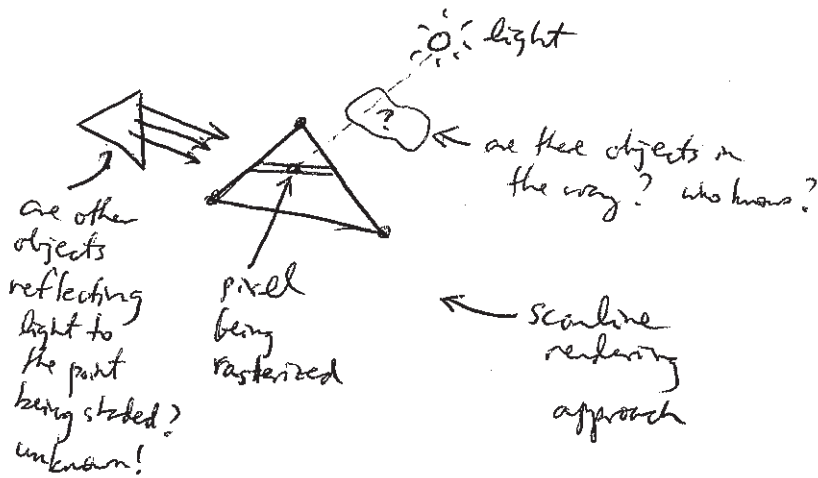 light
?
are there objects in
the way? who knows?
are other
objects
reflecting
light to
the point
being shaded?
unknown!
pixel
being
rasterized
scanline
rendering
approach